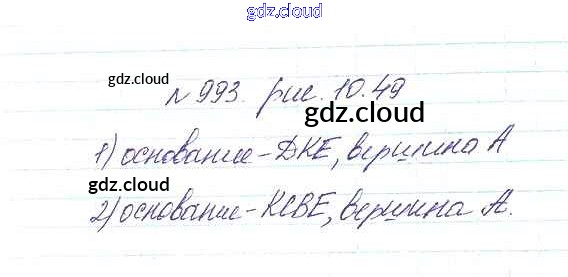 gdz.cloud
gdz.cloud
№ 993. рис. 10.49
gdz.cloud
1) основание - ДКЕ, вершина А
gdz.cloud
2) основание - КСВЕ, вершина А.